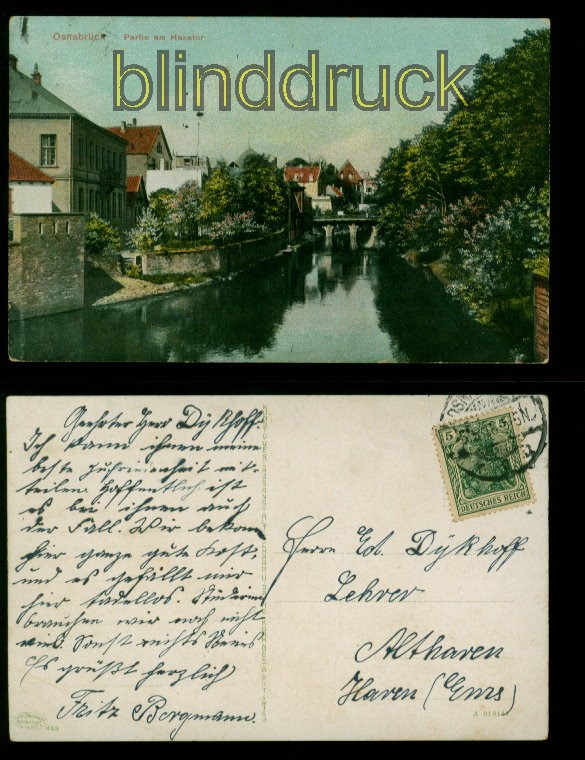 Osnabrück Partie am Hasetor
blinddruck
Geehrter Herr Dykhoff.
Ich kann ihnen meine
beste Zufriedenheit mit-
teilen. Hoffentlich ist
es bei ihnen auch
der Fall. Wir bekom
hier ganze gute Kost,
und es gefällt mir
hier tadellos. Studieren
brauchen wir noch nicht
viel. Sonst nichts Neues
Es grüßt herzlich
Fritz Bergmann.
5 5
DEUTSCHES REICH
Herrn Ed. Dykhoff
Lehrer
Altharen
Haren (Ems)